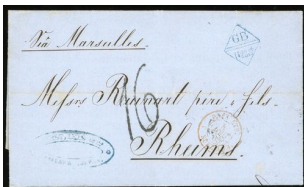 Via Marseilles.
GB
16
Messrs Ruinart père & fils.
Rheims.